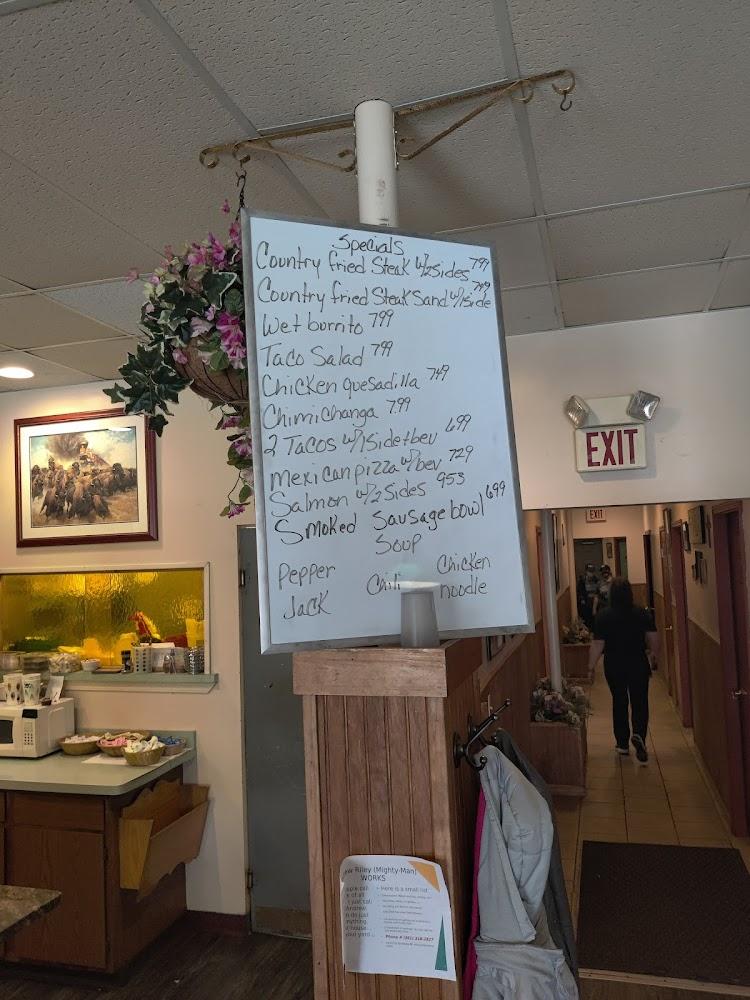 Specials
Country fried Steak w/2sides 799
Country fried Steak Sand w/1side 749
Wet burrito 799
Taco Salad 799
Chicken quesadilla 749
Chimichanga 7.99
2 Tacos w/1side+bev 699
mexican pizza w/bev 729
Salmon w/2 sides 953
Smoked Sausage bowl 699
Soup
Pepper Jack
Chili
Chicken noodle
EXIT
EXIT
ew Riley (Mighty-Man)
WORKS
Here is a small list
Phone #